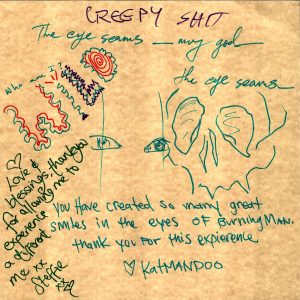 CREEPY SHIT
The eye seams — my god
the eye seams
Who am I?
♡
Love &
blessings, thank you
for allowing me to
experience
a different
me xx
Steffie
xx
you have created so many great
smiles in the eyes of Burning Man.
thank you for this expierence
♡ KatMANDOO